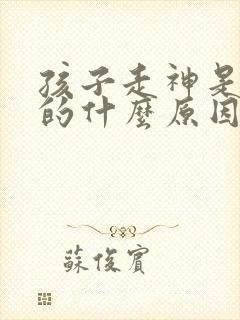 孩子走神是
的什麼原因
蘇俊賓